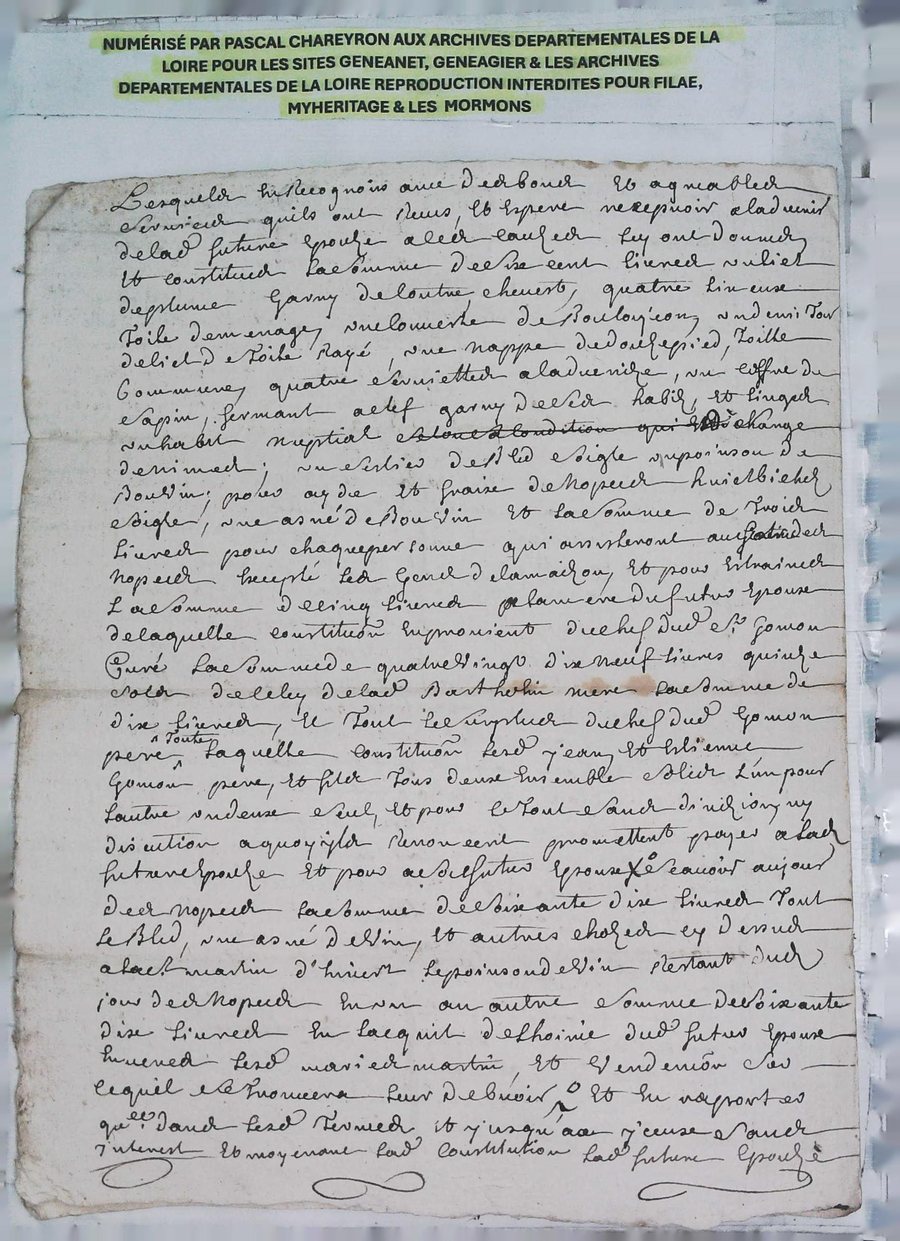 NUMÉRISÉ PAR PASCAL CHAREYRON AUX ARCHIVES DEPARTEMENTALES DE LA
LOIRE POUR LES SITES GENEANET, GENEAGIER & LES ARCHIVES
DEPARTEMENTALES DE LA LOIRE REPRODUCTION INTERDITES POUR FILAE,
MYHERITAGE & LES MORMONS
Lesquels En Recognois ance des bons Et agreables
services quils ont Reçus, Et Espere recepvoir aladvenir
delad. future Epouze a les cauzes luy ont Donnes
Et constitues lasomme desix cent livres un liet
deplume Garny de coutre, chevest, quatre linceuse
Toile demenage, une couverte de un demi Tour
deliet de Toile Rayé, une nappe dedouze pied, Toille
Commune, quatre serviettes un Coffre de
sapin, fermant a clef garny desed habis, et linges
un habit nuptial
; un de Bled seigle un poinson de
Bon Vin; pour ayde Et fraize de Nopces huict bichez
seigle, une asné de Bon Vin Et lasomme de Trois
livres pour chaque personne qui assisteront au des
Nopces Excepté les Gens delamaizon, Et pour Estraines
Lasomme decinq livres alamere dufutur Epouse
delaquelle constituõn Enprovient duchef dud. sr. Gomon
Curé lasommede quatreVingt dix neuf livres quinze
sols decelluy delad. Barthelin mere lasomme de
dix livres, Et Tout lesurplus duchef dud. Gomon
pere, Toute laquelle constituõn lesd. jean, Et Estienne
Gomon pere, Et fils Tous deux Ensemble solid. L'un pour
lautre un deux seul, Et pour le Tout sans divizion, ny
discution aquoy ils Renoncent promettent payer a lad.
future Epouze Et pour a sondit futur Epouse scavoir aujour
des Nopces lasomme desoixante dix livres Tout
le Bled, une asné de Vin, Et autres chozes cy dessus
alast martin d'hivert le poinson de Vin Restant dud.
jour des Nopces En un an autre somme desoixante
dix livres En lacquit de dud. futur Epouse
Envers lesd. maries martin, Et Vendemon
lequel senoncera leur debvoir Et En raporter
qu.ee dans lesd. Termes Et jusqu'aa yceuse sans
interest Et moyenant lad. Constitution lad. future Epouze